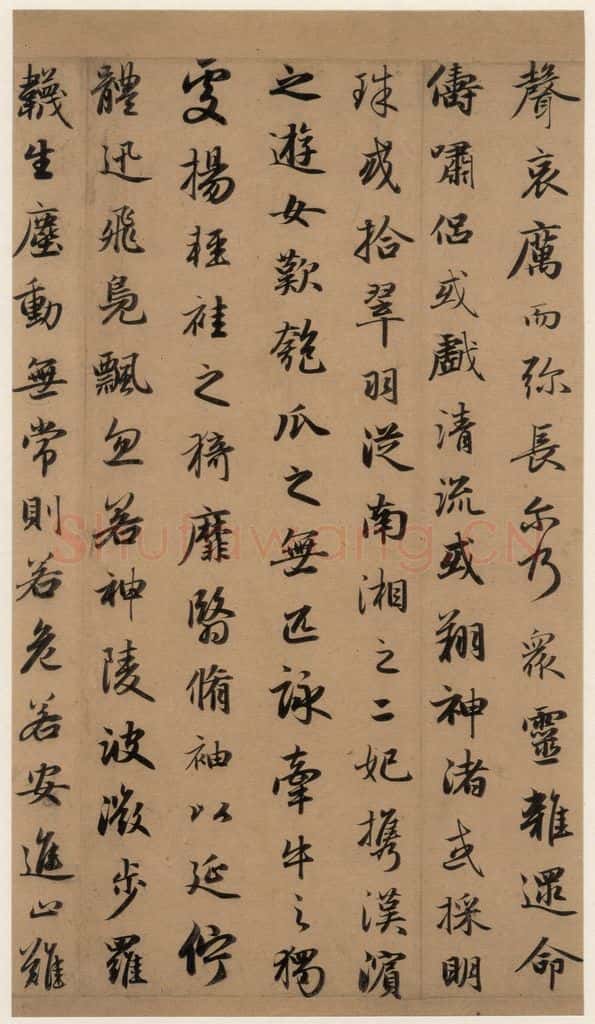 聲哀厲而弥長尔乃眾靈雜遝命
儔嘯侣或戲清流或翔神渚或採明
珠或拾翠羽從南湘之二妃攜漢濱
之遊女歎匏瓜之無匹詠牽牛之獨
處揚輕袿之猗靡翳脩袖以延佇
體迅飛鳧飄忽若神陵波微步羅
韈生塵動無常則若危若安進止難
Shufawang.CN